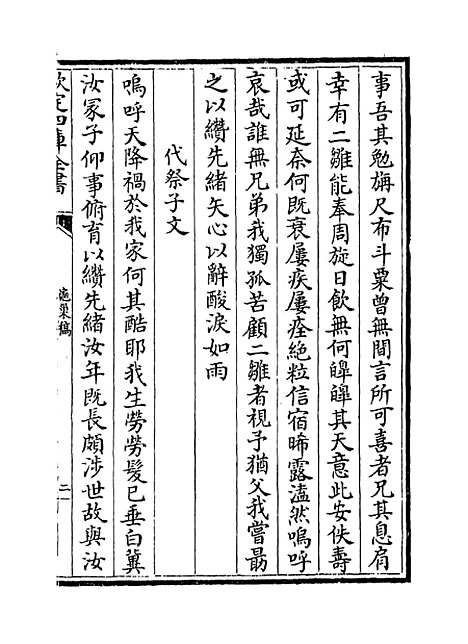 事吾其勉旃尺布斗粟曾無間言所可喜者兄其息肩
幸有二雛能奉周旋日飲無何皥皥其天意此安佚壽
或可延奈何既衰屢疾屢痊絶粒信宿晞露溘然嗚呼
哀哉誰無兄弟我獨孤苦顧二雛者視予猶父我嘗勗
之以纘先緒矢心以辭酸淚如雨
代祭子文
嗚呼天降禍於我家何其酷耶我生勞勞髮已垂白冀
汝冢子仰事俯育以纘先緒汝年既長頗涉世故與汝
欽定四庫全書